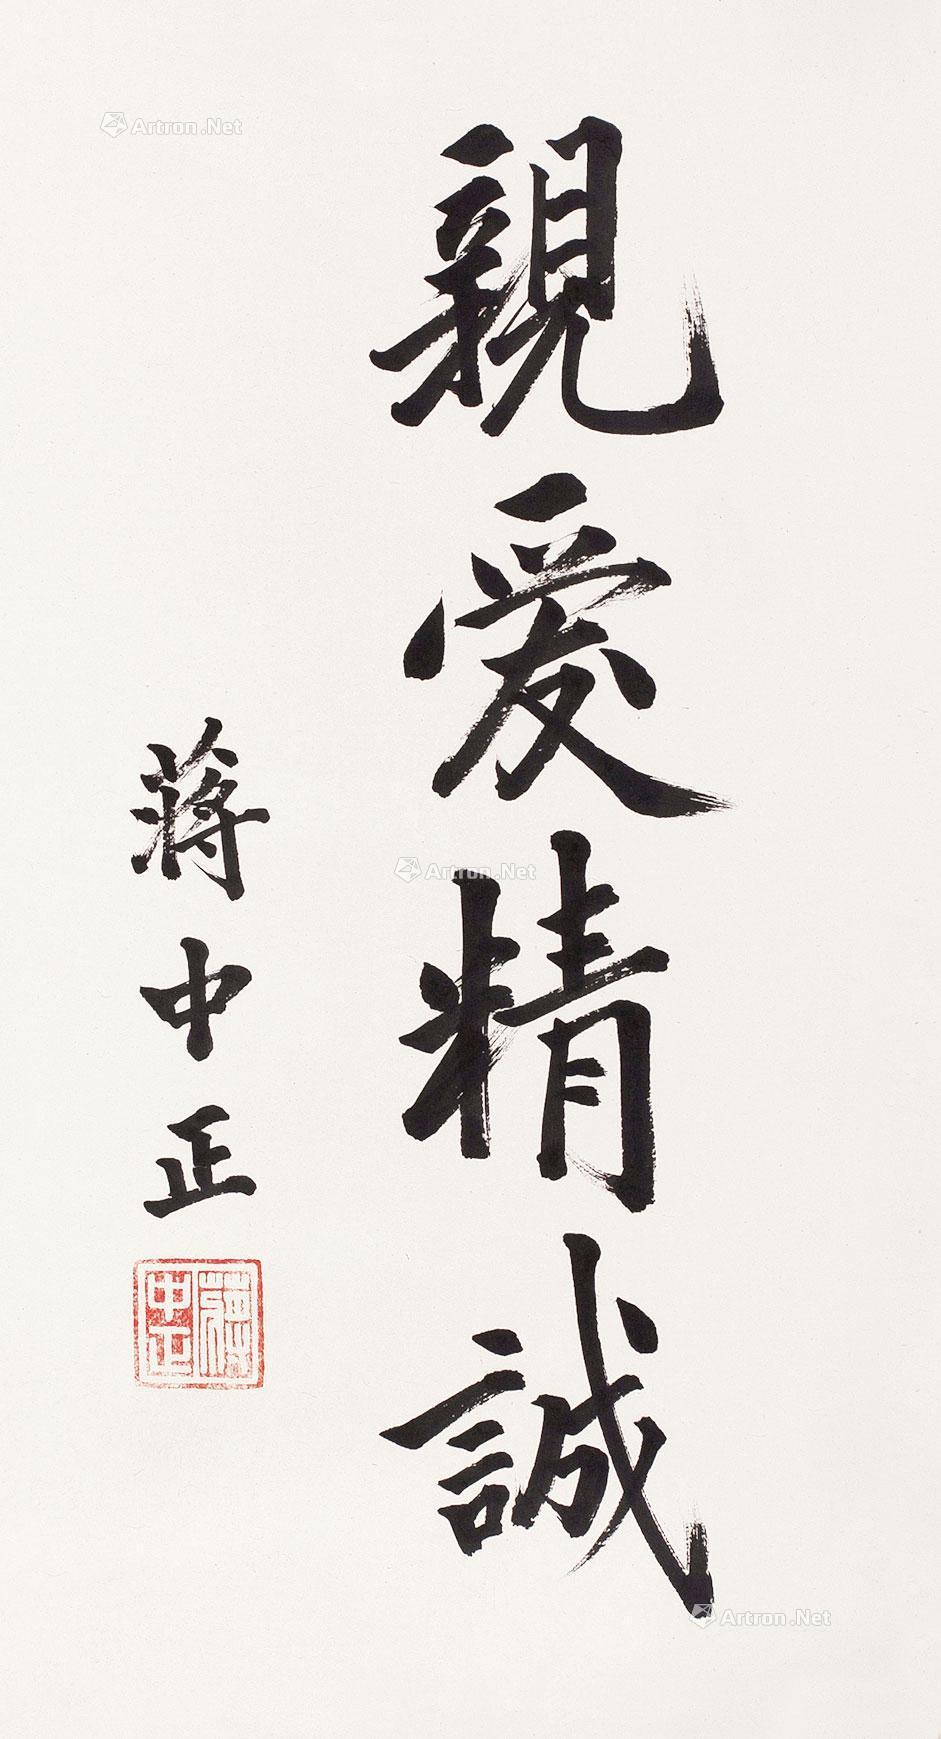 親愛精誠
蔣中正
蔣中正
Artron.Net
Artron.Net
Artron.Net